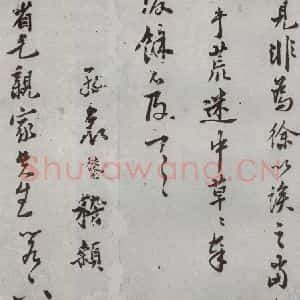 見非為徐以俟之當
乎荒迷中草草奉
餘不及一一
孤哀 稽顙
省元親家先生
Shufawang.CN